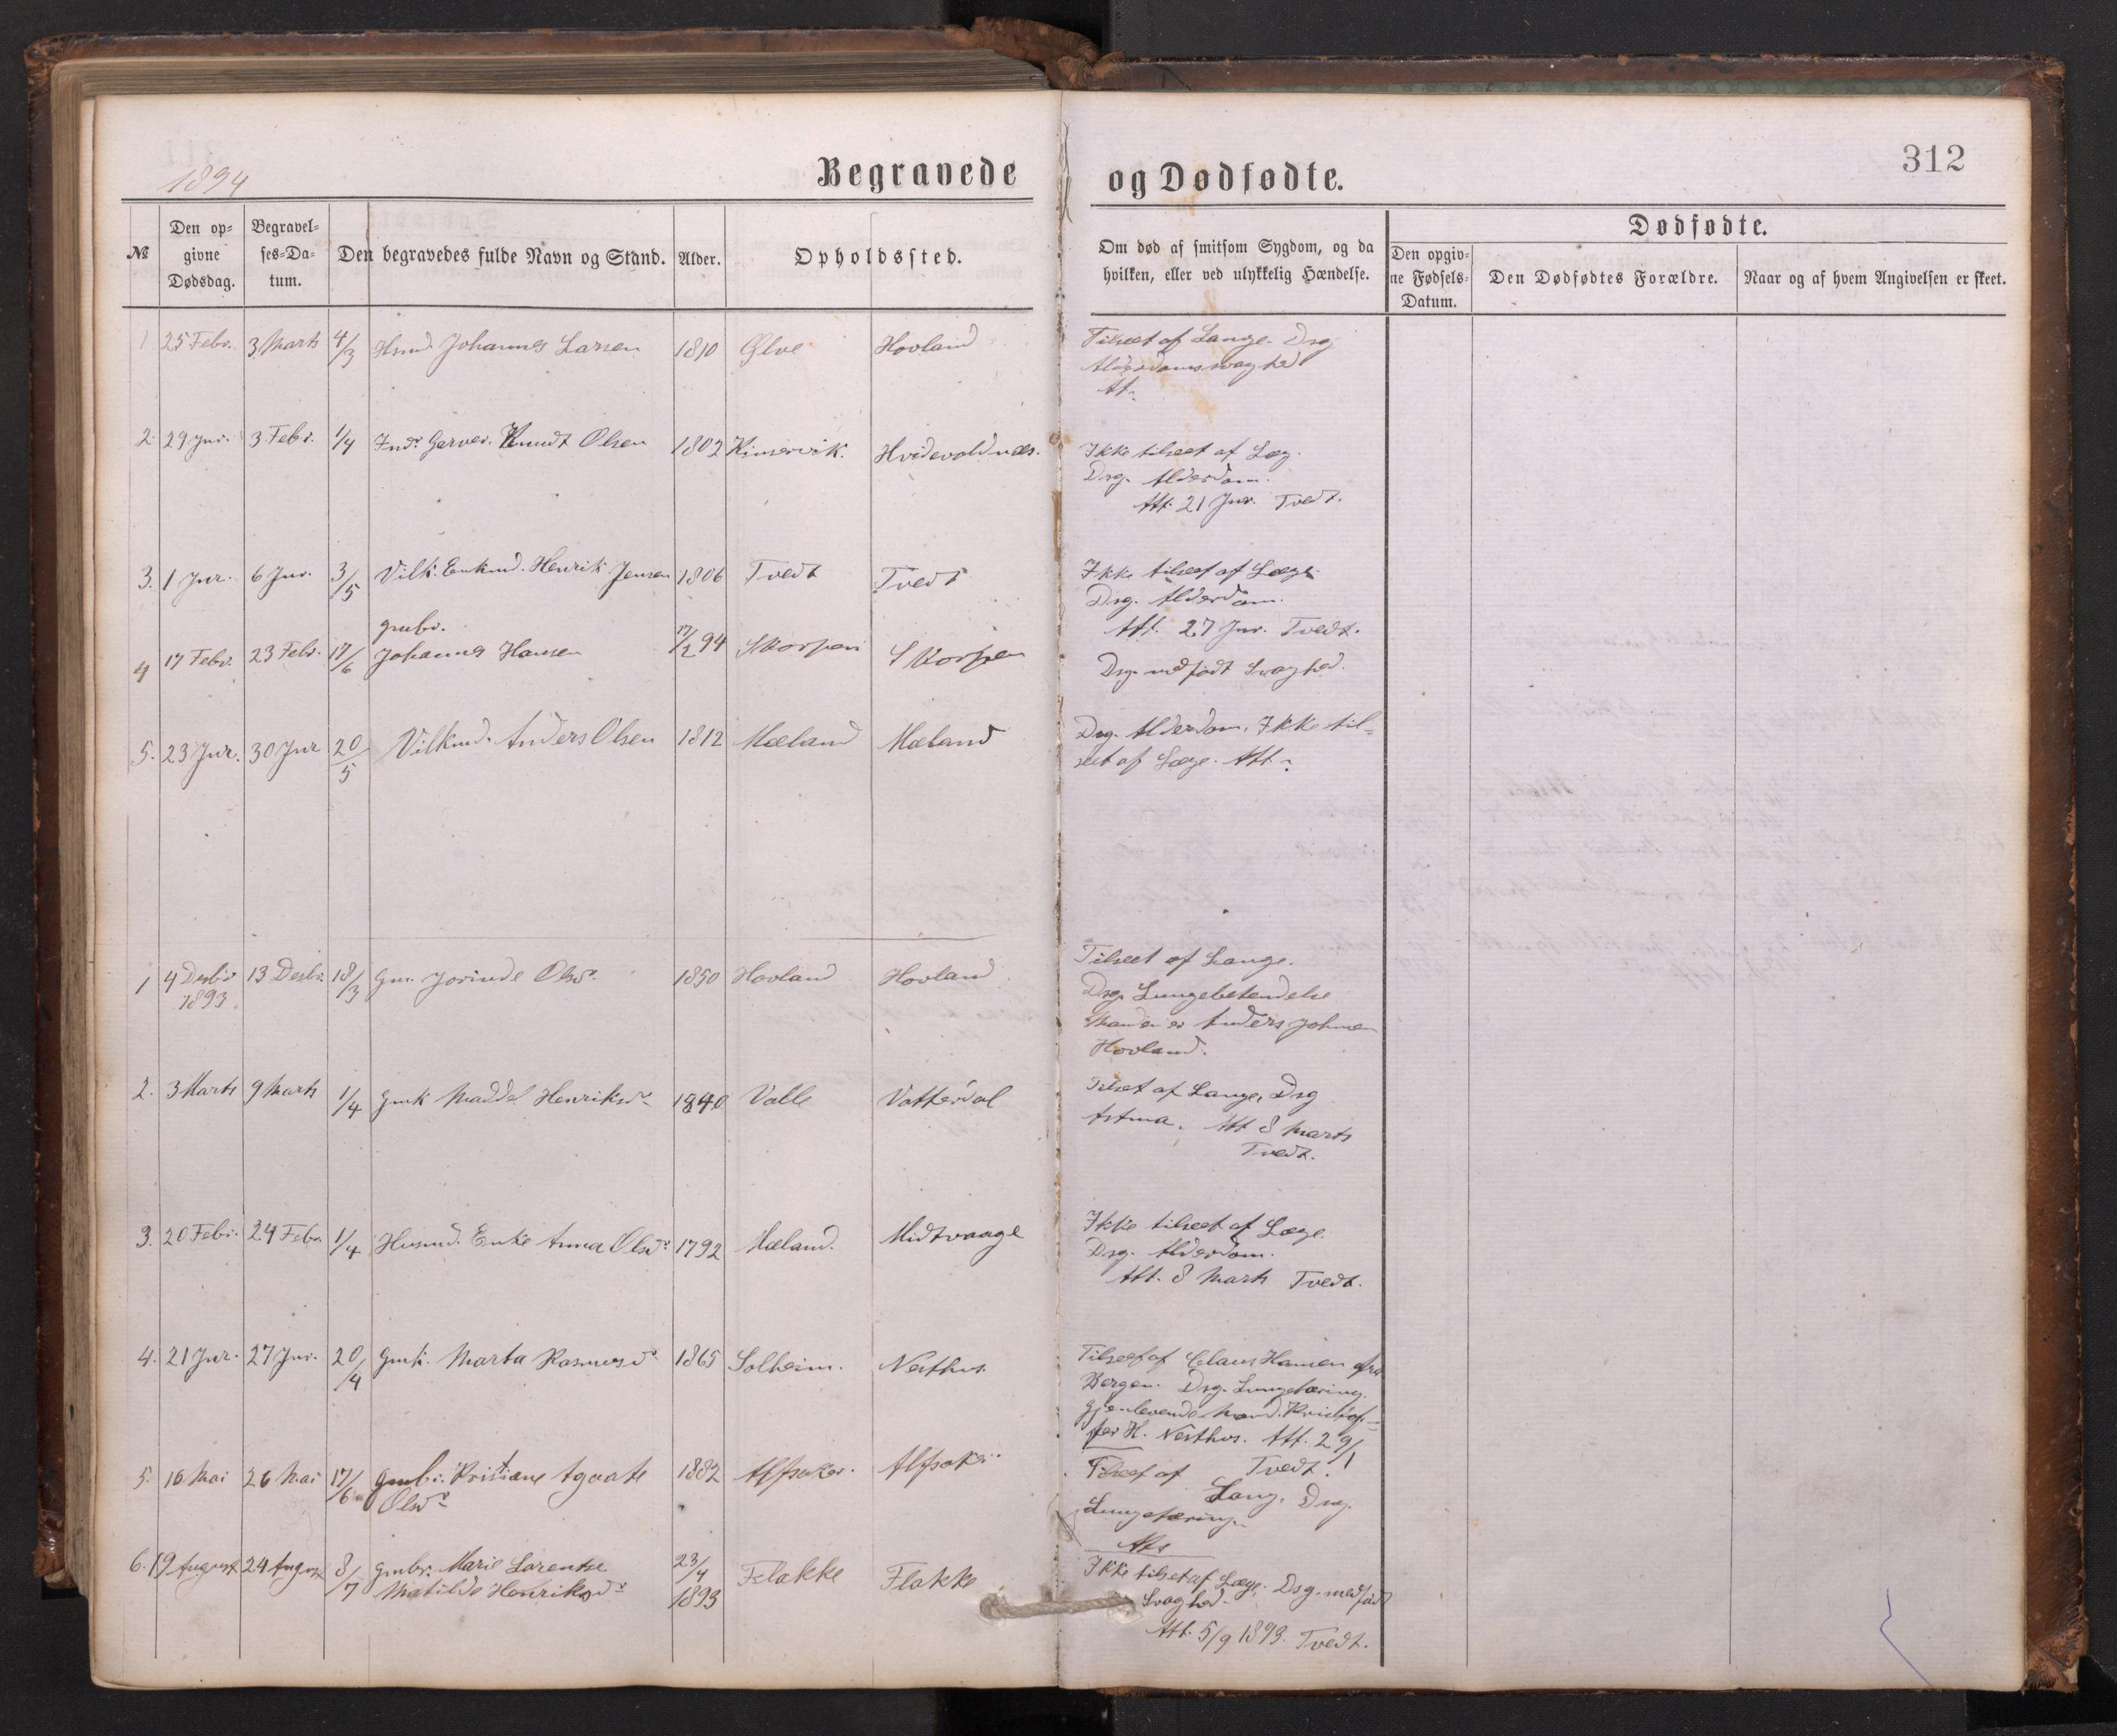 1894
Begravede og Dødfødte.
312
№
Den opgivne Dødsdag.
Begravelses-Datum.
Den begravedes fulde Navn og Stand.
Alder.
Opholdssted.
Om død af smitsom Sygdom, og da hvilken, eller ved ulykkelig Hændelse.
Dødfødte.
Den opgivne Fødsels-Datum.
Den Dødfødtes Forældre.
Naar og af hvem Angivelsen er skeet.
1 25 Febr. 3 Marts 4/3 Hsmd. Johannes Larsen 1810 Ølve Hovland
Tilseet af Lange. Dsg
Alderdomssvaghed
Att.
2. 29 Jnr. 3 Febr. 1/4 Inds. Garver. Knudt Olsen 1802 Kinservik. Hvidevoldnæs.
Ikke tilseet af Læg.
Dsg. Alderdom.
Att. 21 Jnr. Tvedt.
3. 1 Jnr. 6 Jnr. 3/5 Vilk. Enkmd. Henrik Jensen 1806 Tvedt Tvedt
Ikke tilseet af Læge.
Dsg. Alderdom.
Att. 27 Jnr. Tvedt.
4 17 Febr. 23 Febr. 17/6 gmbr.
Johannes Hansen 17/2 94 Skorpen Skorpen
Dsg. medfødt Svaghed.
5. 23 Jnr. 30 Jnr 20/5 Vilkmd. Anders Olsen 1812 Mæland Mæland
Dsg. Alderdom. Ikke til-
seet af Læge. Att.
1 4 Desbr 1893 13 Desbr. 18/3 Gm. Jorinde Olsdr. 1850 Hovland Hovland
Tilseet af Lange.
Dsg. Lungebetendelse
Manden er Anders Johnsen
Hovland.
2. 3 Marts 9 Marts 1/4 Gmk Maddel Henriksdr. 1840 Valle Vatterdal
Tilseet af Lange, Dsg
Astma. Att 8 Marts
Tvedt.
3. 20 Febr. 24 Febr. 1/4 Husmd. Enke Anna Olsdr. 1792 Mæland. Midtvaage
Ikke tilseet af Læge.
Dsg. Alderdom.
Att. 8 Marts Tvedt.
4. 21 Jnr. 27 Jnr. 20/4 Gmk. Marta Rasmusdr. 1865 Solheim. Nesthus.
Tilseet af Claus Hansen fra
Bergen. Dsg. Lungetæring.
Gjenlevende Mand. Kristof-
fer H. Nesthus. Att. 29/1
Tvedt.
5. 16 Mai 26 Mai 17/6 Gmbr. Kristiane Agaate
Olsdr. 1882 Alfsaker. Alfsaker.
Tilseet af Lang. Dsg.
Lungetæring.
Att
6. 19 August 24 August 8/7 gmbr. Marie Larentse
Matilde Henriksdr. 23/4 1893 Flakke Flakke
Ikke tilset af Læge. Dsg. medfødt
Svaghed.
Att. 5/9 1893. Tvedt.